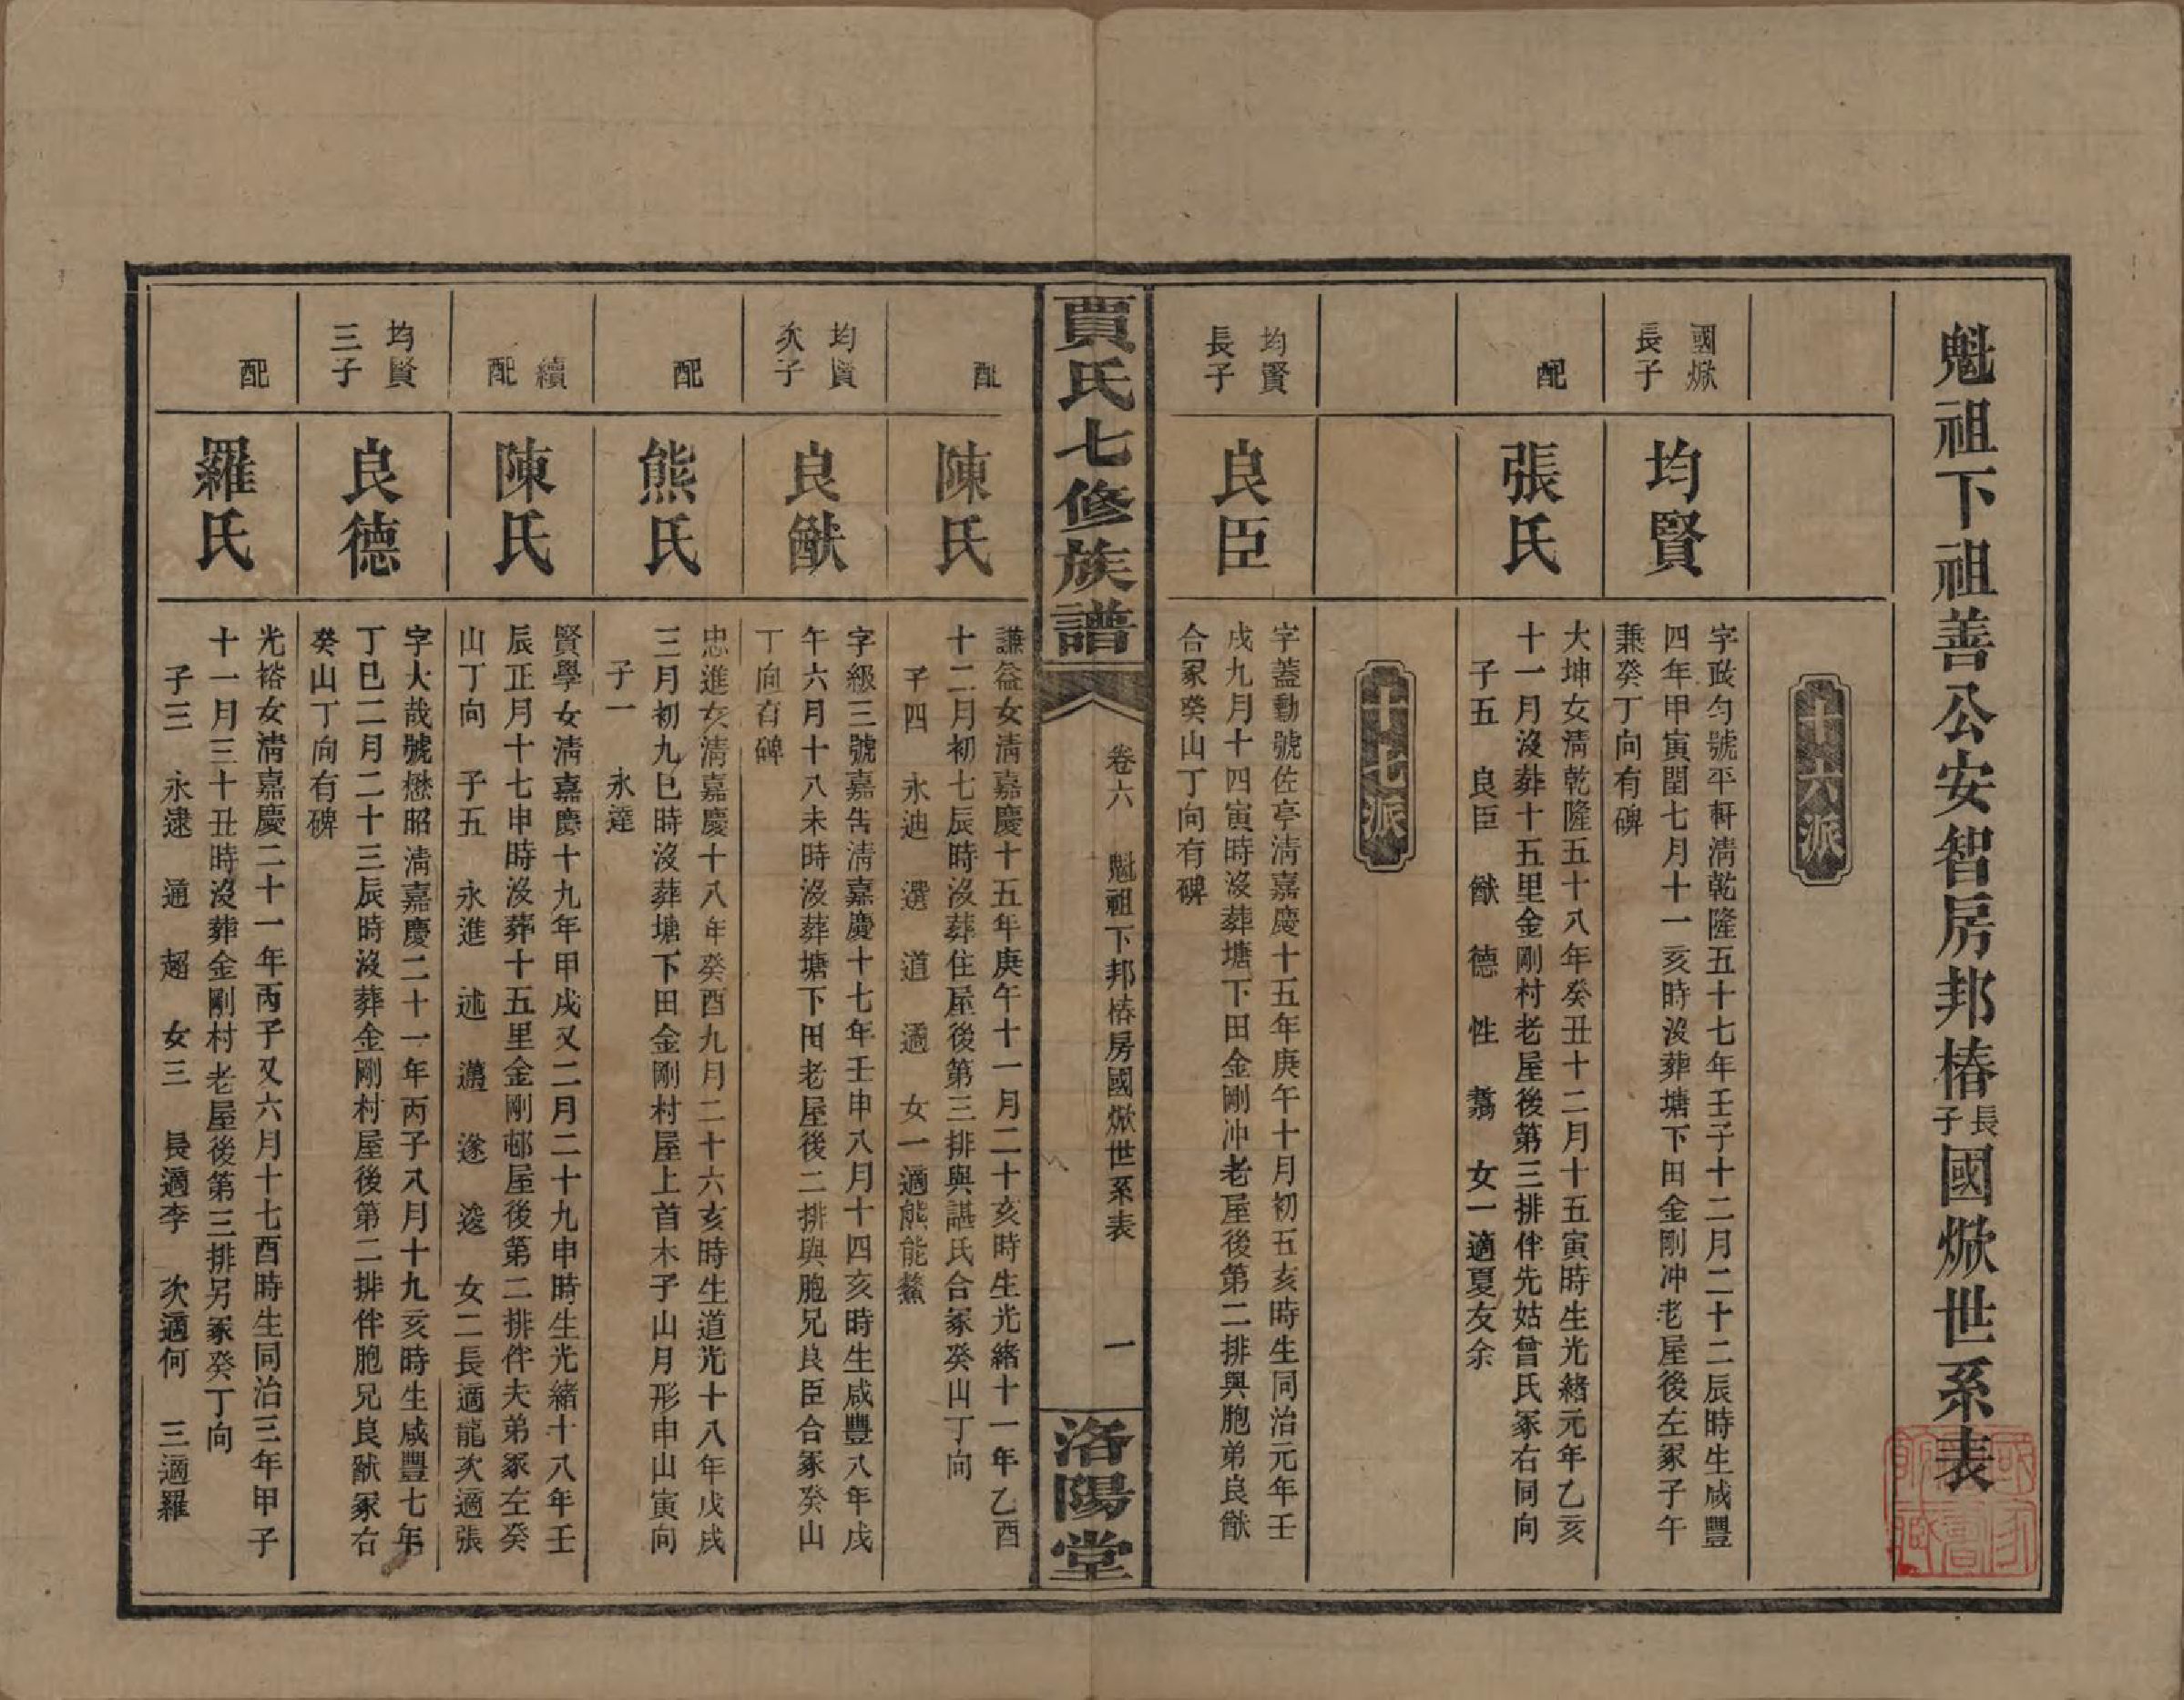 魁祖下祖善公安智房邦椿長子國焮世系表
十六派
國焮長子
均賢
字政勻號平軒淸乾隆五十七年壬子十二月二十二辰時生咸豐
四年甲寅閏七月十一亥時沒葬塘下田金剛冲老屋後左冢子午
兼癸丁向有碑
配
張氏
大坤女淸乾隆五十八年癸丑十二月十五寅時生光緒元年乙亥
十一月沒葬十五里金剛村老屋後第三排伴先姑曾氏冢右同向
子五 良臣 猷 德 性 翥 女一適夏友余
十七派
均賢長子
良臣
字蓋勳號佐亭淸嘉慶十五年庚午十月初五亥時生同治元年壬
戌九月十四寅時沒葬塘下田金剛冲老屋後第二排與胞弟良猷
合冢癸山丁向有碑
賈氏七修族譜
卷六 魁祖下邦椿房國焮世系表
一
洛陽堂
配
陳氏
謙益女淸嘉慶十五年庚午十一月二十亥時生光緒十一年乙酉
十二月初七辰時沒葬住屋後第三排與諶氏合冢癸山丁向
子四 永迪 選 道 適 女一適熊能鰲
均賢次子
良猷
字級三號嘉告淸嘉慶十七年壬申八月十四亥時生咸豐八年戊
午六月十八未時沒葬塘下田老屋後二排與胞兄良臣合冢癸山
丁向有碑
配
熊氏
忠進女淸嘉慶十八年癸酉九月二十六亥時生道光十八年戊戌
三月初九巳時沒葬塘下田金剛村屋上首木子山月形申山寅向
子一 永達
續配
陳氏
賢學女淸嘉慶十九年甲戌又二月二十九申時生光緒十八年壬
辰正月十七申時沒葬十五里金剛邨屋後第二排伴夫弟冢左癸
山丁向 子五 永進 述 邁 遂 逡 女二長適龍次適張
均賢三子
良德
字大哉號懋昭淸嘉慶二十一年丙子八月十九亥時生咸豐七年
丁巳二月二十三辰時沒葬金剛村屋後第二排伴胞兄良猷冢右
癸山丁向有碑
配
羅氏
光裕女淸嘉慶二十一年丙子又六月十七酉時生同治三年甲子
十一月三十丑時沒葬金剛村老屋後第三排另冢癸丁向
子三 永逮 通 超 女三 長適李 次適何 三適羅